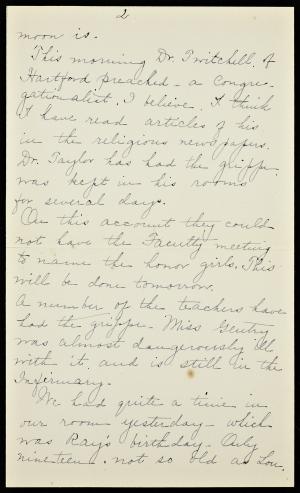 2
moon is.
This morning Dr. Twitchell, of
Hartford preached - a Congre-
gationalist, I believe. I think
I have read articles of his
in the religious newspapers.
Dr. Taylor has had the grippe,
was kept in his rooms
for several days.
On this account they could
not have the Faculty meeting
to name the honor girls. This
will be done tomorrow.
A number of the teachers have
had the grippe - Miss Gentry
was almost dangerously ill
with it and is still in the
Infirmary.
We had quite a time in
our room yesterday - which
was Ray's birthday - Only
nineteen - not so old as Lou.